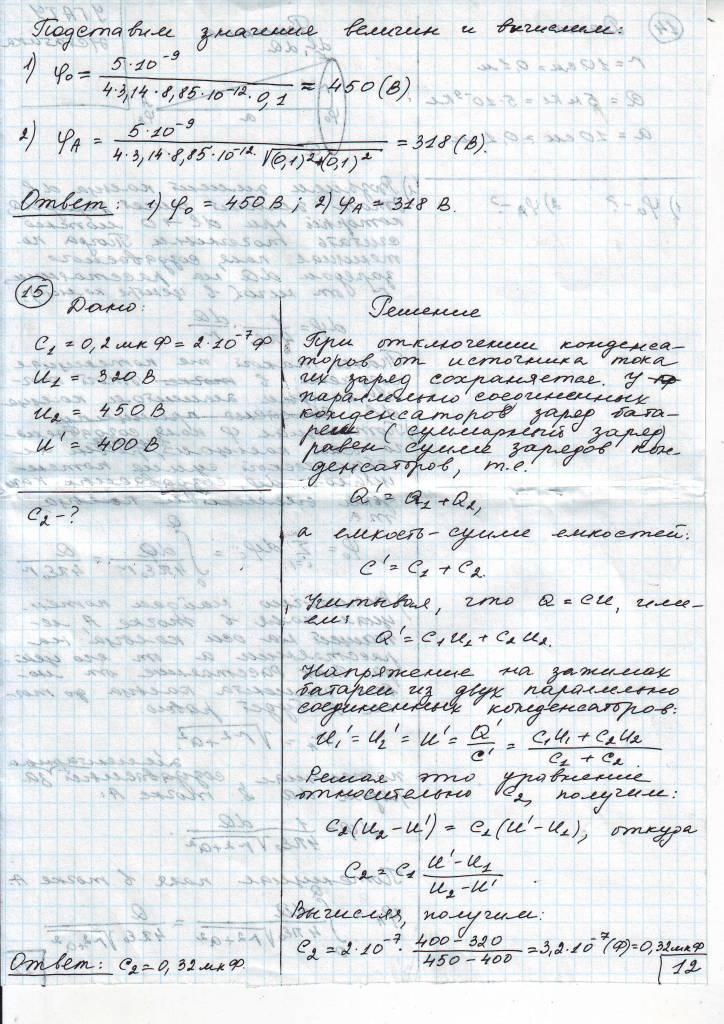 Подставим значения величин и вычислим:
1) φ₀ = 5·10⁻⁹ / 4·3,14·8,85·10⁻¹²·0,1 = 450 (В)
2) φ_A = 5·10⁻⁹ / 4·3,14·8,85·10⁻¹² √(0,1)²+(0,1)² = 318 (В).
Ответ: 1) φ₀ = 450 В; 2) φ_A = 318 В.
15
Дано:
C₁ = 0,2 мкФ = 2·10⁻⁷ Ф
U₁ = 320 В
U₂ = 450 В
U' = 400 В
C₂ - ?
Решение
При отключении конденса-
торов от источника тока
их заряд сохраняется. У
параллельно соединенных
конденсаторов заряд бата-
реи (суммарный заряд)
равен сумме зарядов кон-
денсаторов, т.е.
Q' = Q₁ + Q₂,
а емкость - сумме емкостей:
C' = C₁ + C₂.
Учитывая, что Q = CU, име-
ем:
Q' = C₁U₁ + C₂U₂.
Напряжение на зажимах
батареи из двух параллельно
соединенных конденсаторов:
U₁' = U₂' = U' = Q' / C' = C₁U₁ + C₂U₂ / C₁ + C₂.
Решая это уравнение
относительно C₂, получим:
C₂(U₂ - U') = C₁(U' - U₁), откуда
C₂ = C₁ U' - U₁ / U₂ - U'.
Вычисляя, получим:
C₂ = 2·10⁻⁷ · 400 - 320 / 450 - 400 = 3,2·10⁻⁷ (Ф) = 0,32 мкФ
Ответ: C₂ = 0,32 мкФ.
12